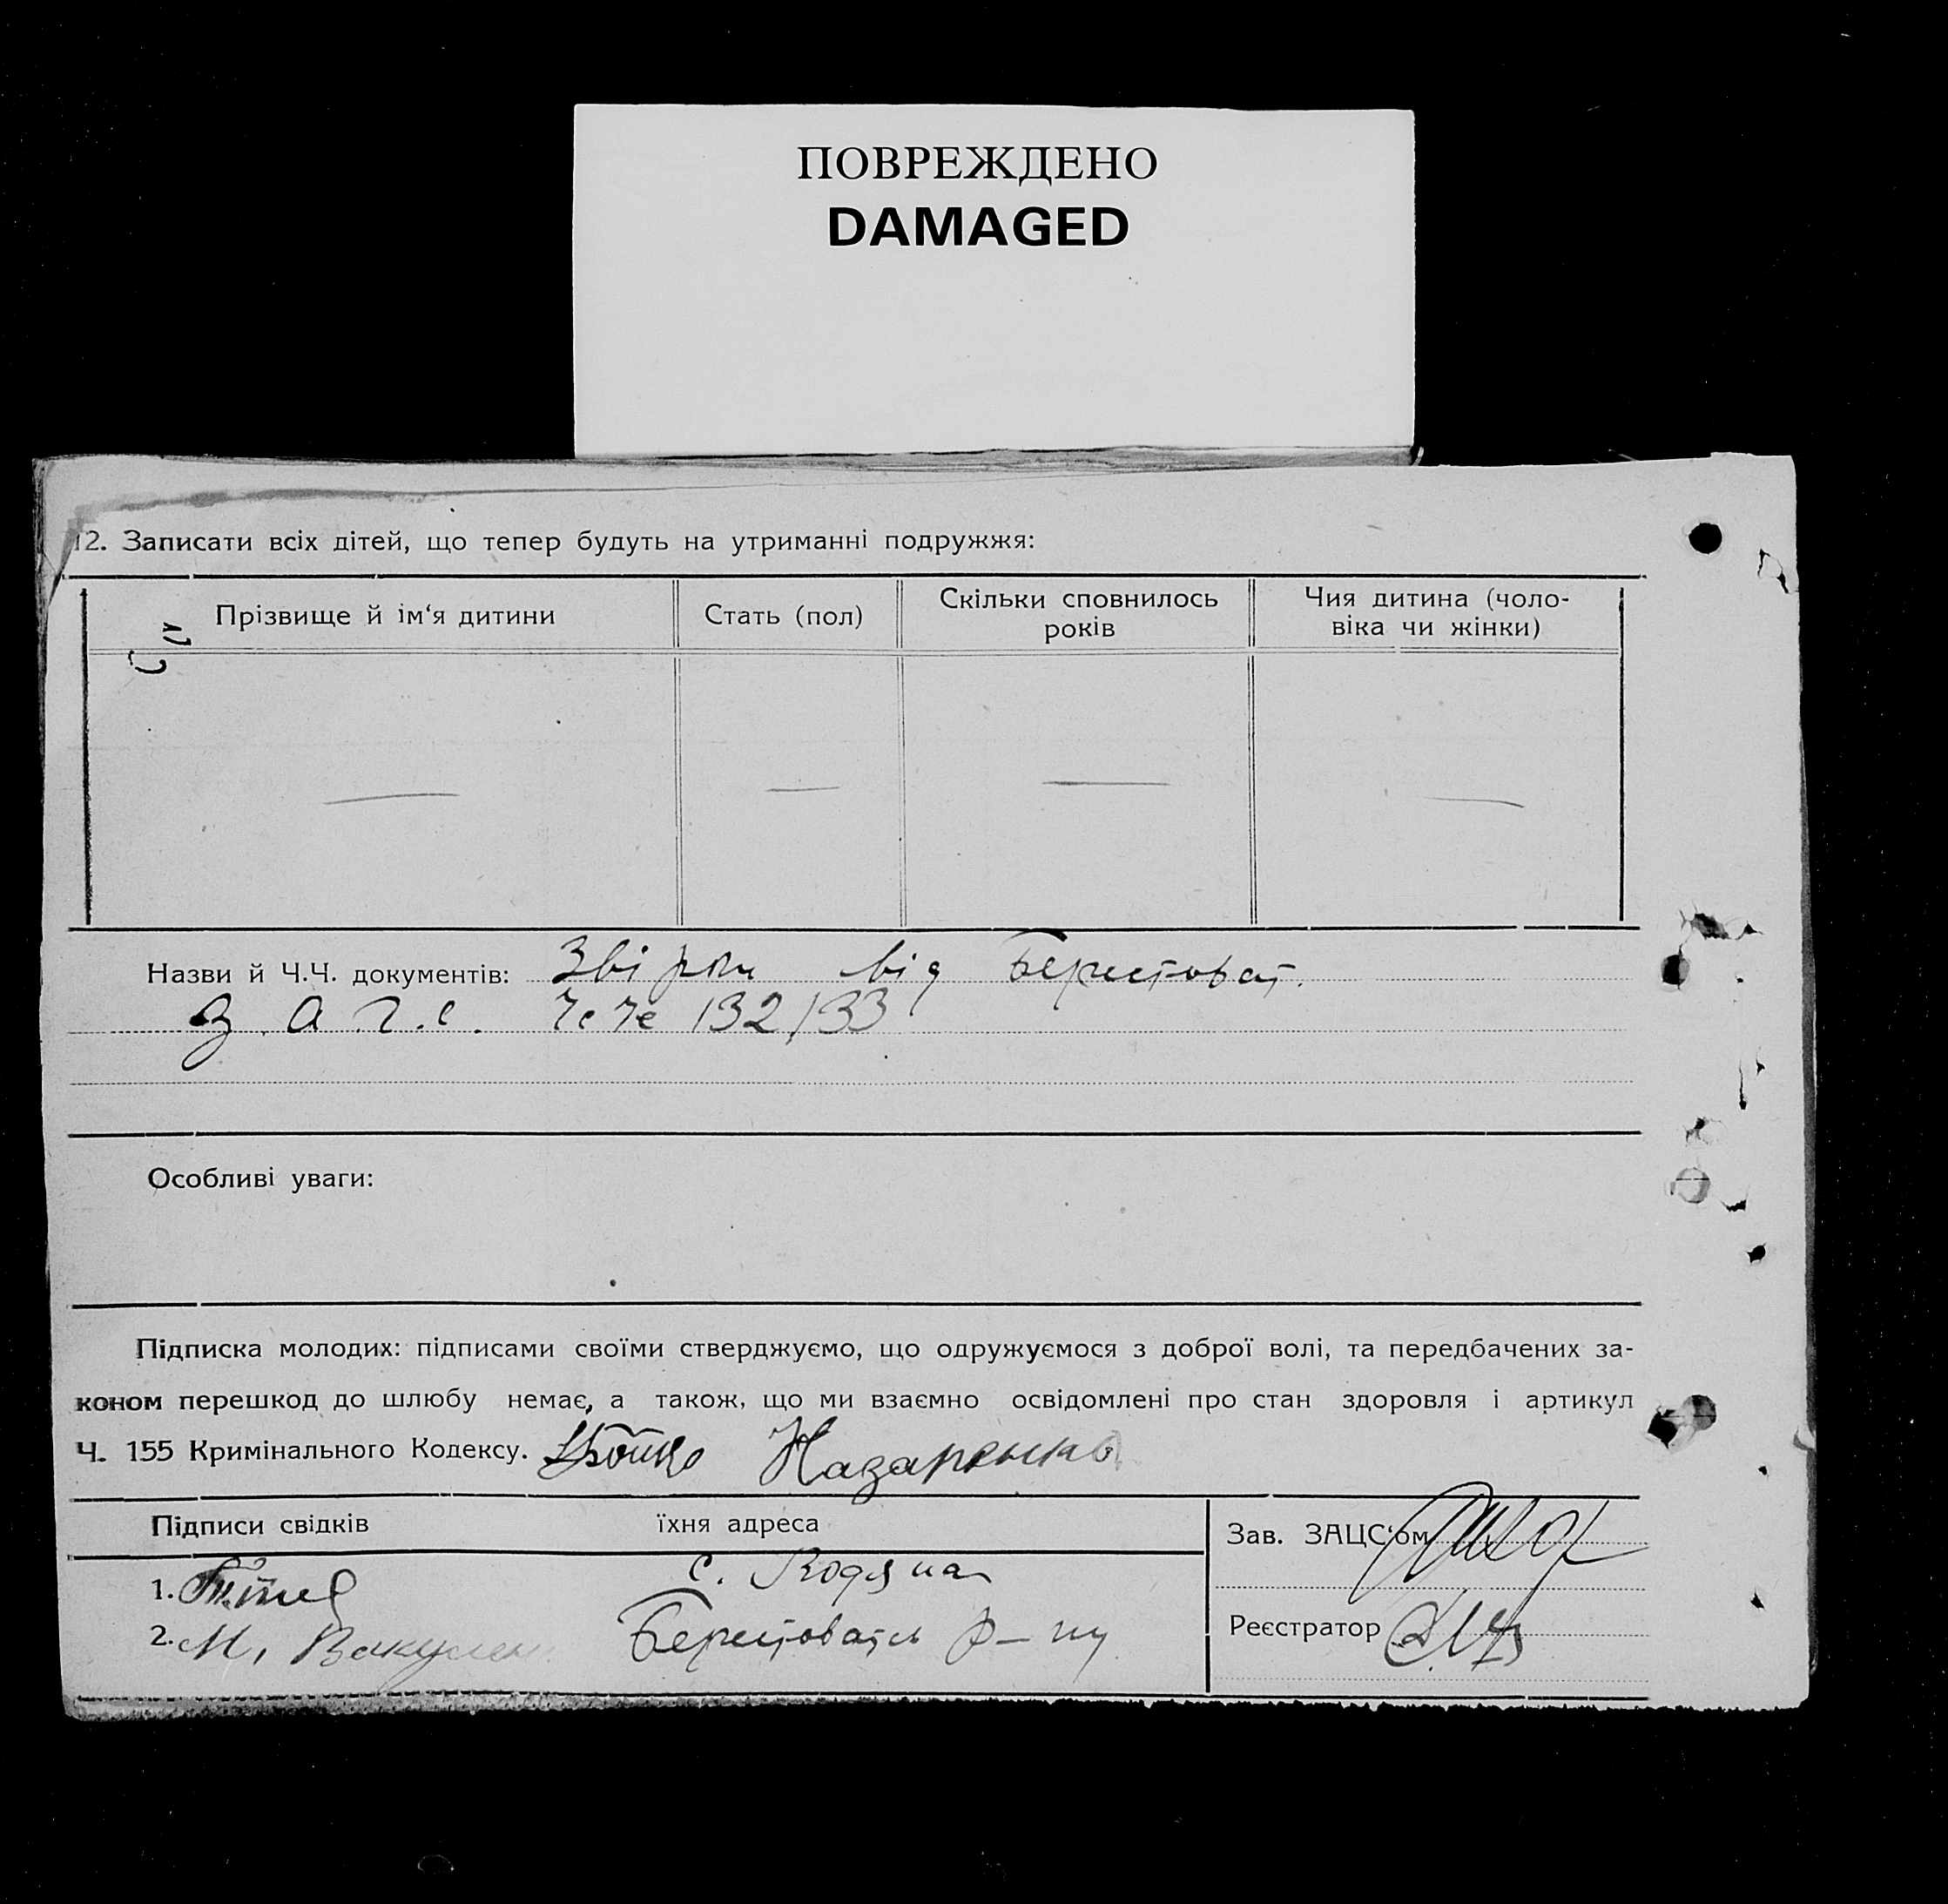 ПОВРЕЖДЕНО
DAMAGED
12. Записати всіх дітей, що тепер будуть на утриманні подружжя:
Прізвище й ім‘я дитини Стать (пол) Скільки сповнилось років Чия дитина (чоло-віка чи жінки)
Назви й Ч.Ч. документів: від Берестоват.
З.А.Г.С. 132/33
Особливі уваги:
Підписка молодих: підписами своїми стверджуємо, що одружуємося з доброї волі, та передбачених за-
коном перешкод до шлюбу немає, а також, що ми взаємно освідомлені про стан здоровля і артикул
Ч. 155 Кримінального Кодексу. Назаренко
Підписи свідків їхня адреса Зав. ЗАЦС‘ом
1. с. Водяна
2. М. Вакулен Берестоватсь р-ну
Реєстратор